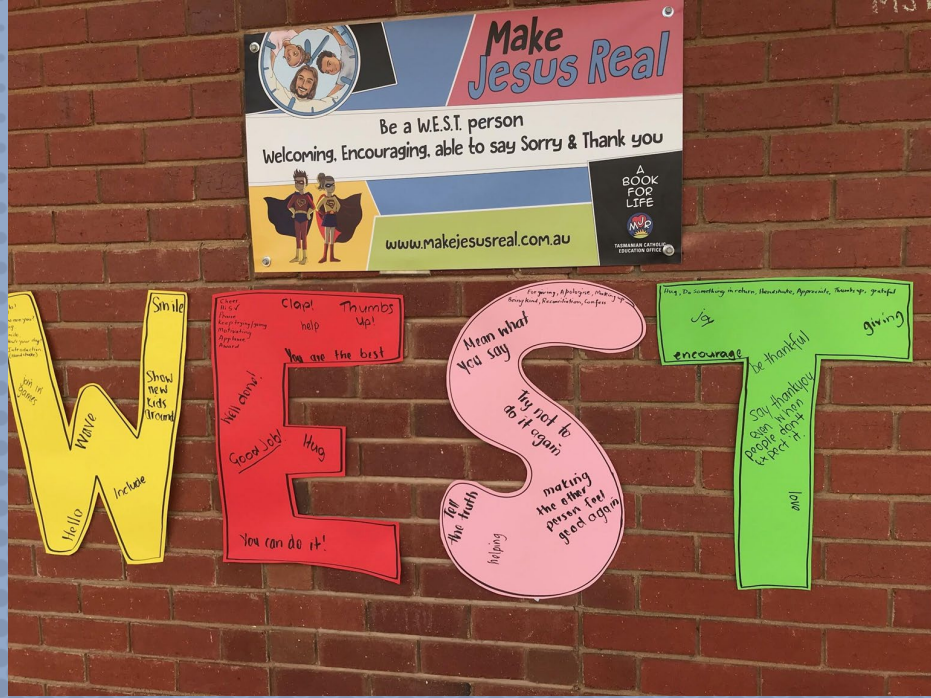 Make
Jesus Real
Be a W.E.S.T. person
Welcoming, Encouraging, able to say Sorry & Thank you
www.makejesusreal.com.au
A
BOOK
FOR
LIFE
MJR
TASMANIAN CATHOLIC
EDUCATION OFFICE
Smile
Show
new
kids
around
join in
games
Wave
Include
Hello
Cheer
Praise
Keep trying/going
Motivating
Applause
Award
Clap!
help
Thumbs
up!
You are the best
Well done!
Good Job!
Hug
You can do it!
Forgiving, Apologise, Making up
Being kind, Reconciliation, Confess
Mean what
you say
Try not to
do it again
Tell
the truth
making
the other
person feel
good again
helping
Hug, Do something in return, Appreciate, Thumbs up, grateful
Joy
giving
encourage
be thankful
Say thankyou
even when
people don't
expect it.
love